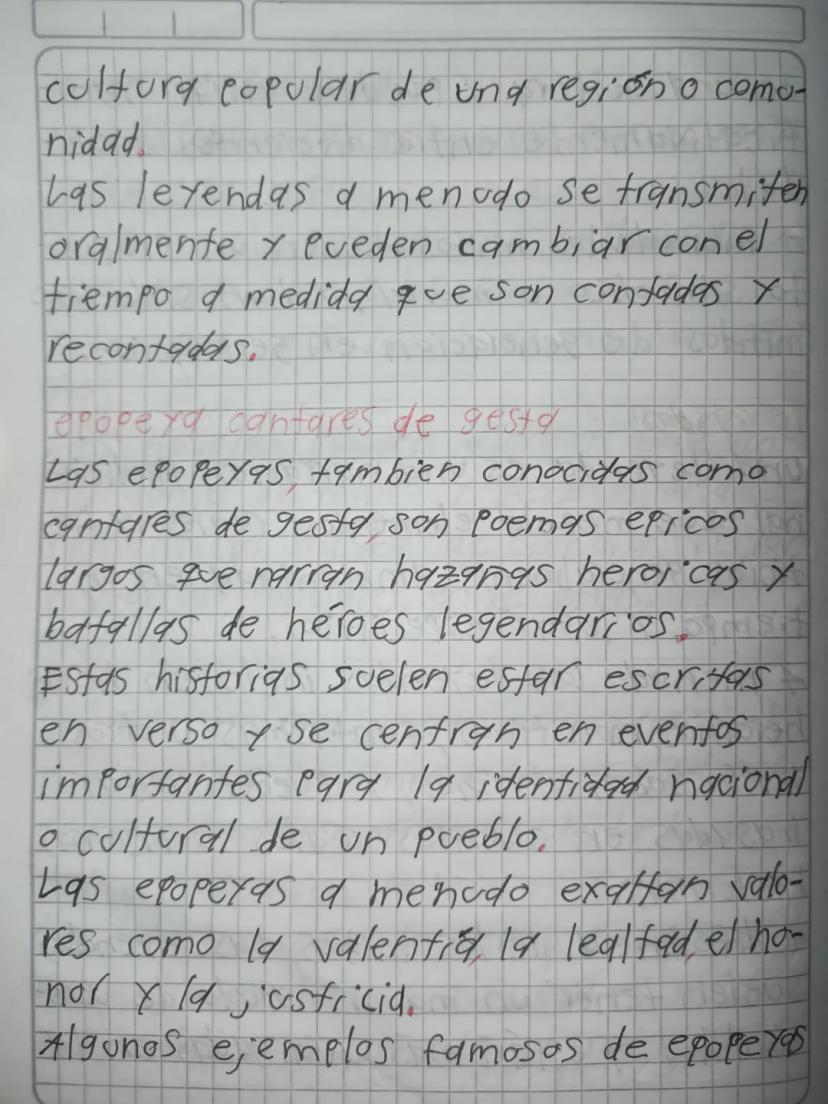 cultura popular de una región o comu-
nidad.
Las leyendas a menudo se transmiten
oralmente y pueden cambiar con el
tiempo a medida que son contadas y
recontadas.
epopeya cantares de gesta
Las epopeyas, tambien conocidas como
cantares de gesta, son poemas epicos
largos que narran hazañas heroicas y
batallas de héroes legendarios.
Estas historias suelen estar escritas
en verso y se centran en eventos
importantes para la identidad nacional
o cultural de un pueblo.
Las epopeyas a menudo exaltan valo-
res como la valentía, la lealtad, el ho-
nor y la justicia.
Algunos ejemplos famosos de epopeyas